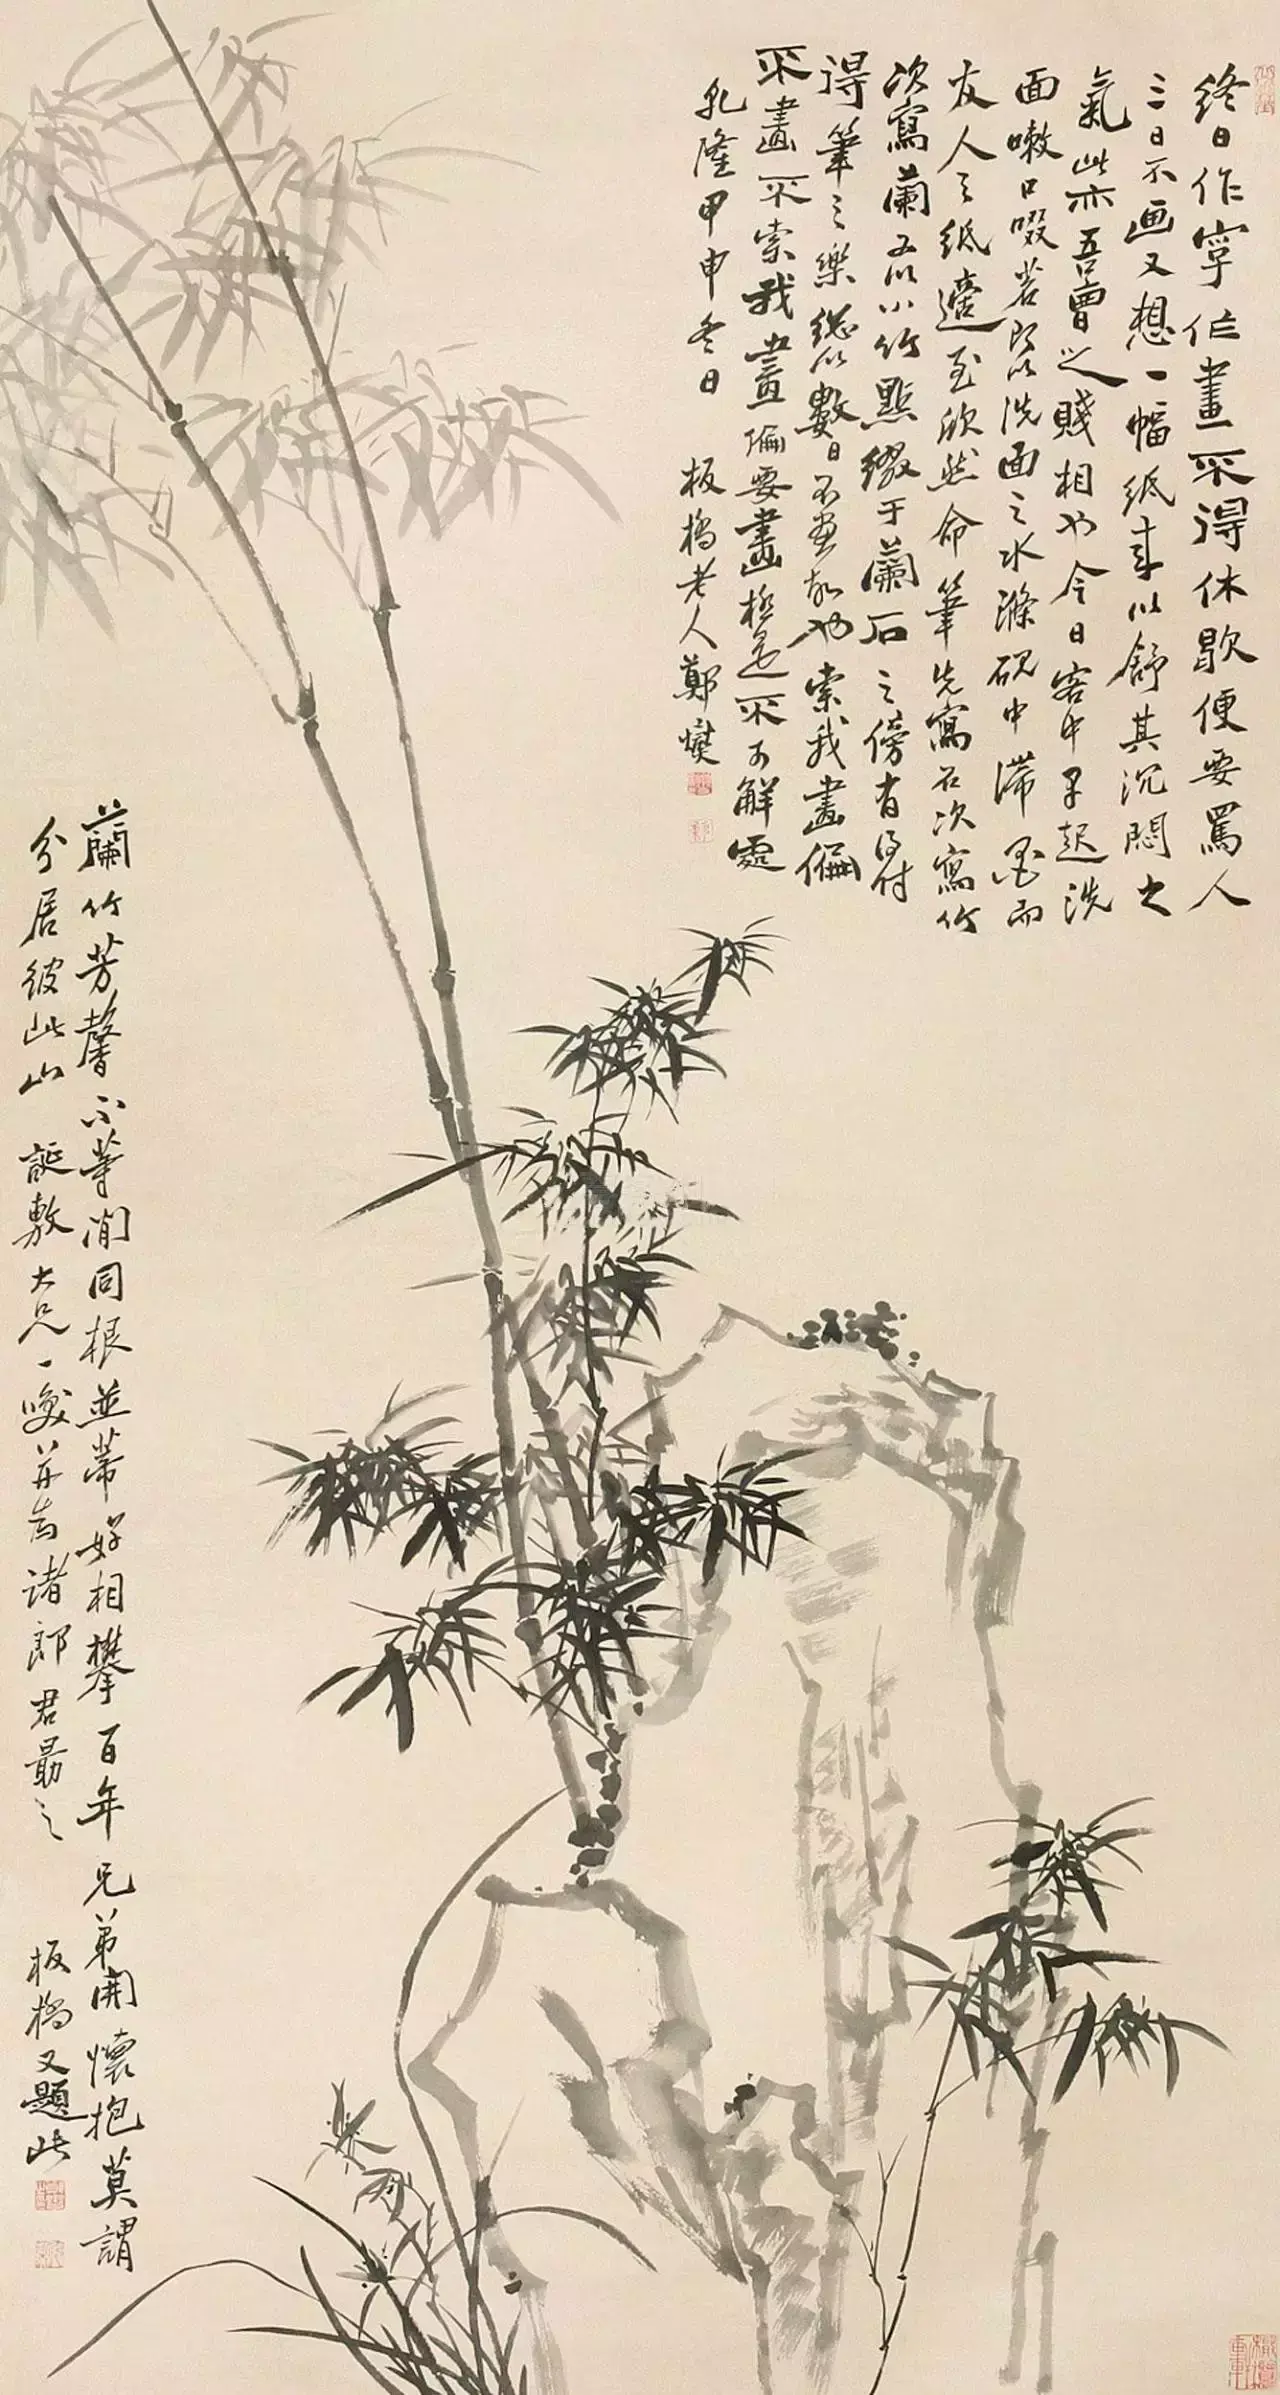 終日作字作畫不得休歇便要罵人
三日不画又想一幅紙來以舒其沉悶之
氣此亦吾曹之賤相也今日客中早起洗
面嗽口啜茗即以洗面之水滌硯中滞墨而
友人之紙適至欣然命筆先寫石次寫竹
次寫蘭又以小竹點綴于蘭石之傍有得付
得筆之樂總以數日不畫故也索我畫偏
不畫不索我畫偏要畫極是不可解處
乾隆甲申冬日 板橋老人鄭燮
蘭竹芳馨不等閒同根並蒂好相攀百年兄弟開懷抱莫謂
分居彼此山 誕敷大兄一噱并為諸郎君勗之 板橋又題此